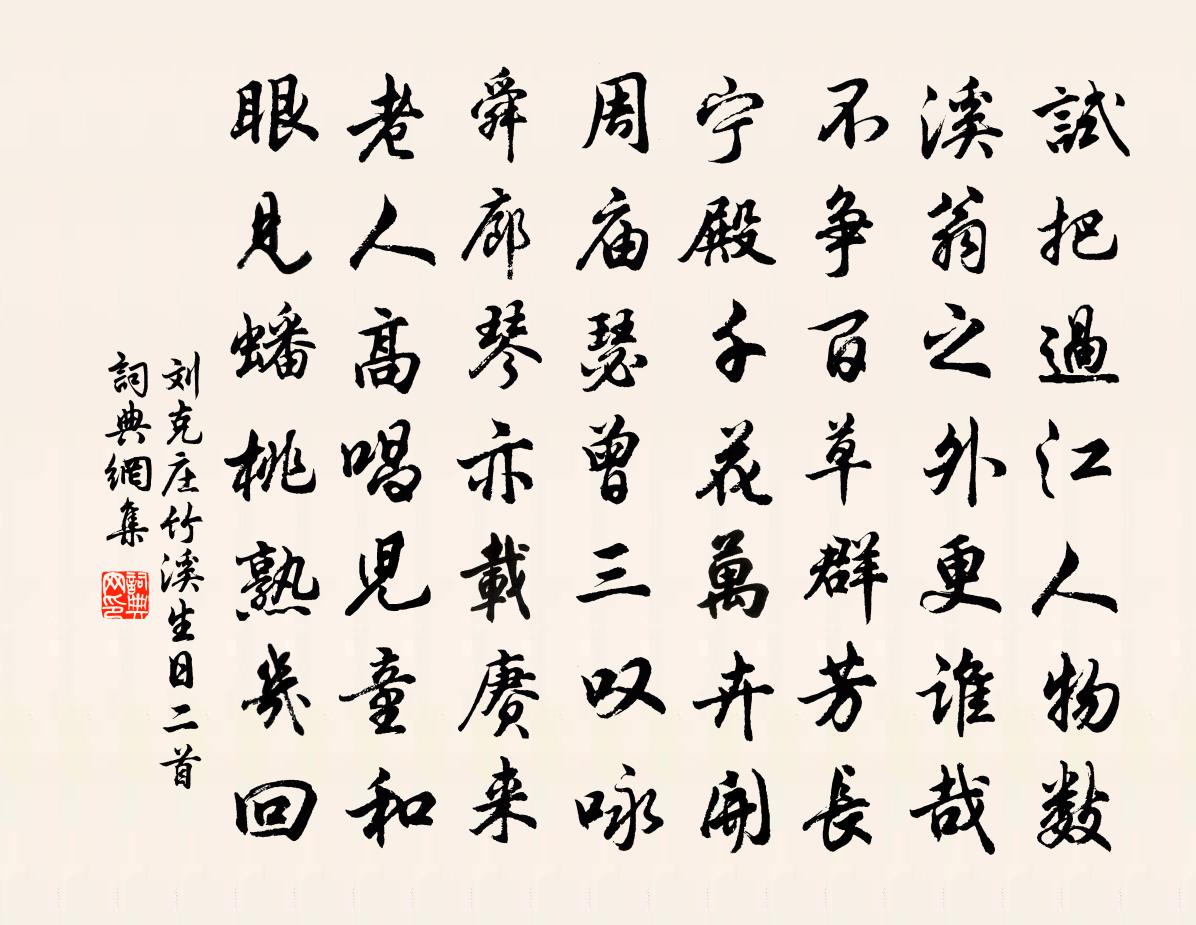 試把過江人物数
溪翁之外更誰哉
不争百草群芳長
宁殿千花萬卉開
周庙瑟曾三叹咏
舜廊琴亦載赓来
老人高唱児童和
眼見蟠桃熟幾回
刘克庄竹溪生日二首
詞典網集
詞典网印